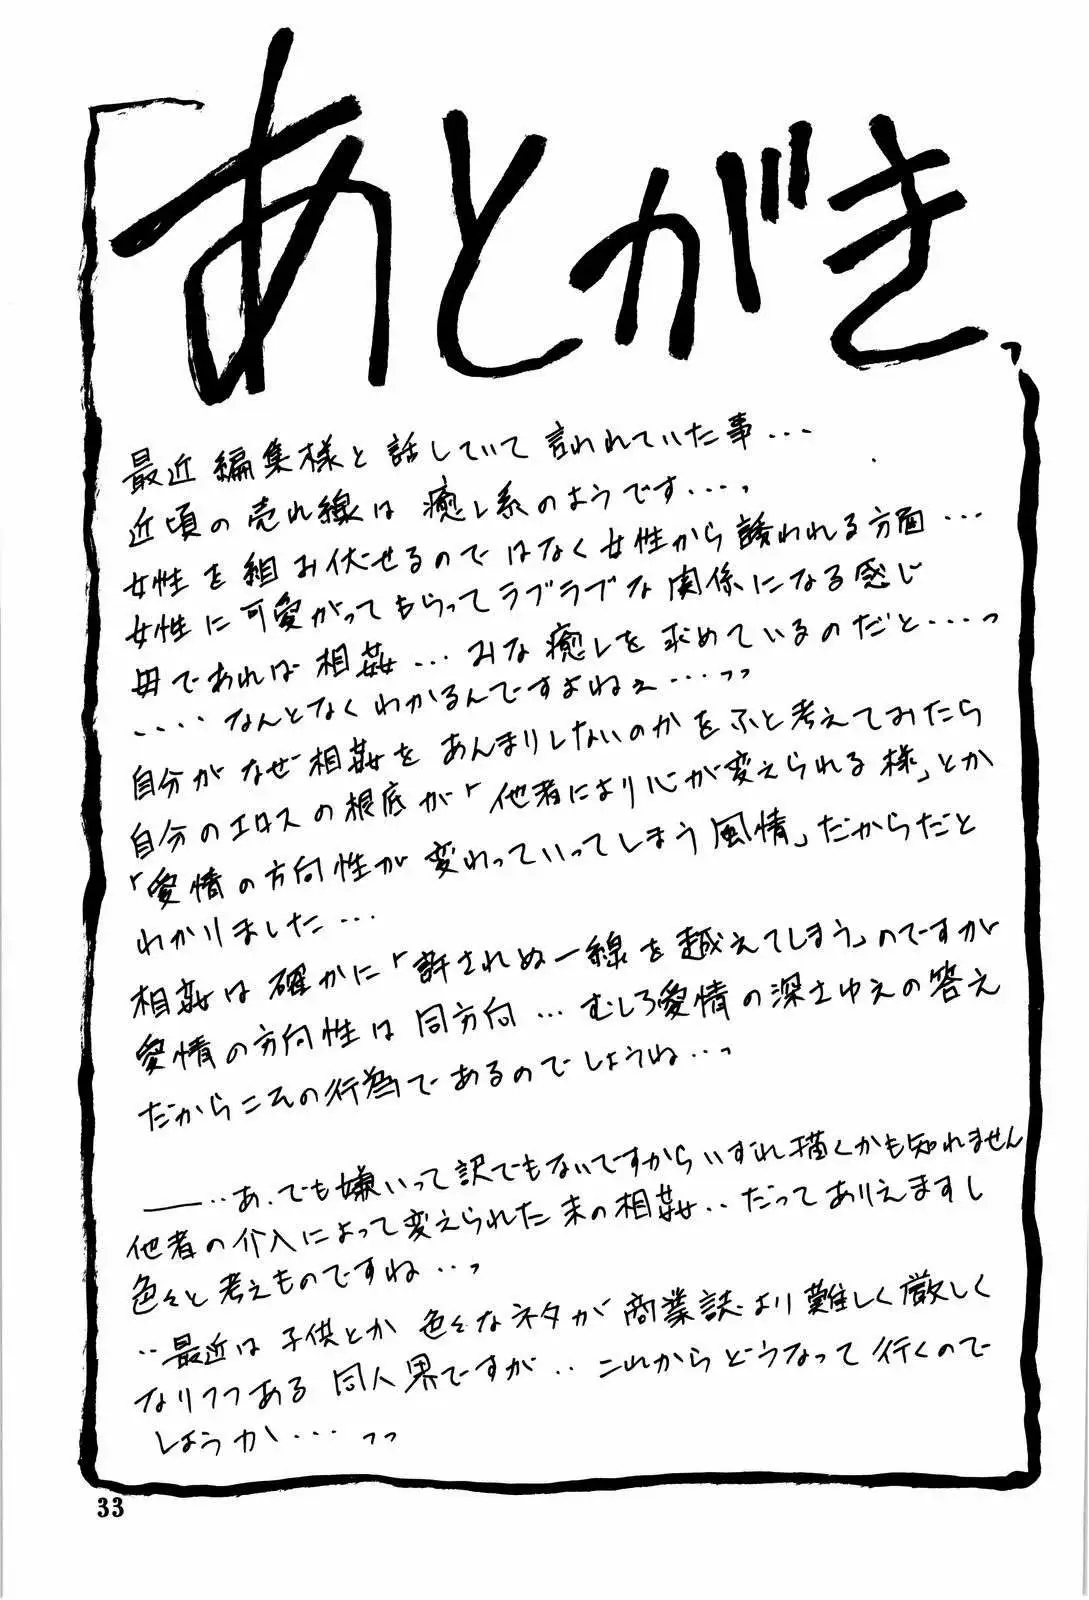 あとがき
最近編集様と話していて言われていた事・・・
近頃の売れ線は癒し系のようです・・・っ
女性を組み伏せるのではなく女性から誘われる方面・・・
女性に可愛がってもらってラブラブな関係になる感じ
母であれば相姦・・・みな癒しを求めているのだと・・・っ
・・・・なんとなくわかるんですよねぇ・・・っっ
自分がなぜ相姦をあんまりしないのかをふと考えてみたら
自分のエロスの根底が「他者により心が変えられる様」とか
「愛情の方向性が変わっていってしまう風情」だからだと
わかりました・・・
相姦は確かに「許されぬ一線を越えてしまう」のですが
愛情の方向性は同方向・・・むしろ愛情の深さゆえの答え
だからこその行為であるのでしょうね・・っ
――・・あ、でも嫌いって訳でもないですからいずれ描くかも知れません
他者の介入によって変えられた末の相姦・・だってありえますし
色々と考えものですね・・っ
・・最近は子供とか色々なネタが商業誌より難しく厳しく
なりつつある同人界ですが・・これからどうなって行くので
しょうか・・・っっ
33